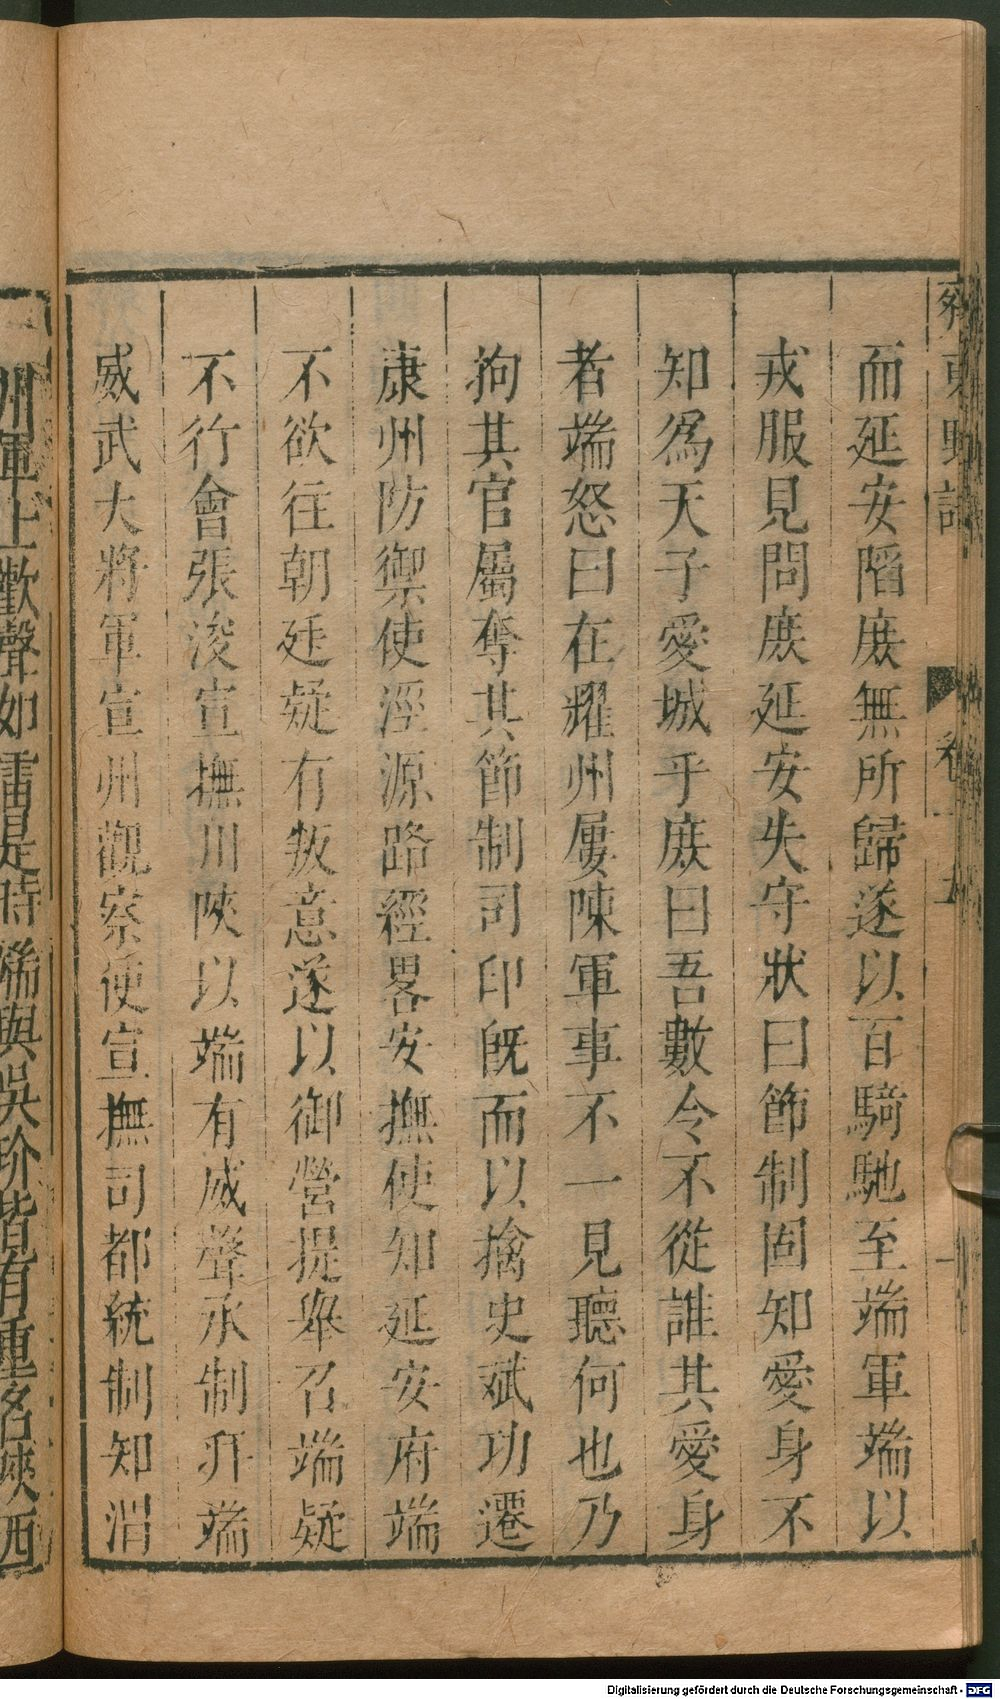 齊東野語
卷十五
而延安陷庶無所歸遂以百騎馳至端軍端以
戎服見問庶延安失守狀曰節制固知愛身不
知爲天子愛城乎庶曰吾數令不從誰其愛身
者端怒曰在耀州屢陳軍事不一見聽何也乃
拘其官屬奪其節制司印旣而以擒史斌功遷
康州防禦使涇源路經畧安撫使知延安府端
不欲往朝廷疑有叛意遂以御營提舉召端疑
不行會張浚宣撫川陝以端有威聲承制拜端
威武大將軍宣州觀察使宣撫司都統制知渭
州軍士歡聲如雷是時端與吳玠皆有重名陝西
Digitalisierung gefördert durch die Deutsche Forschungsgemeinschaft - DFG